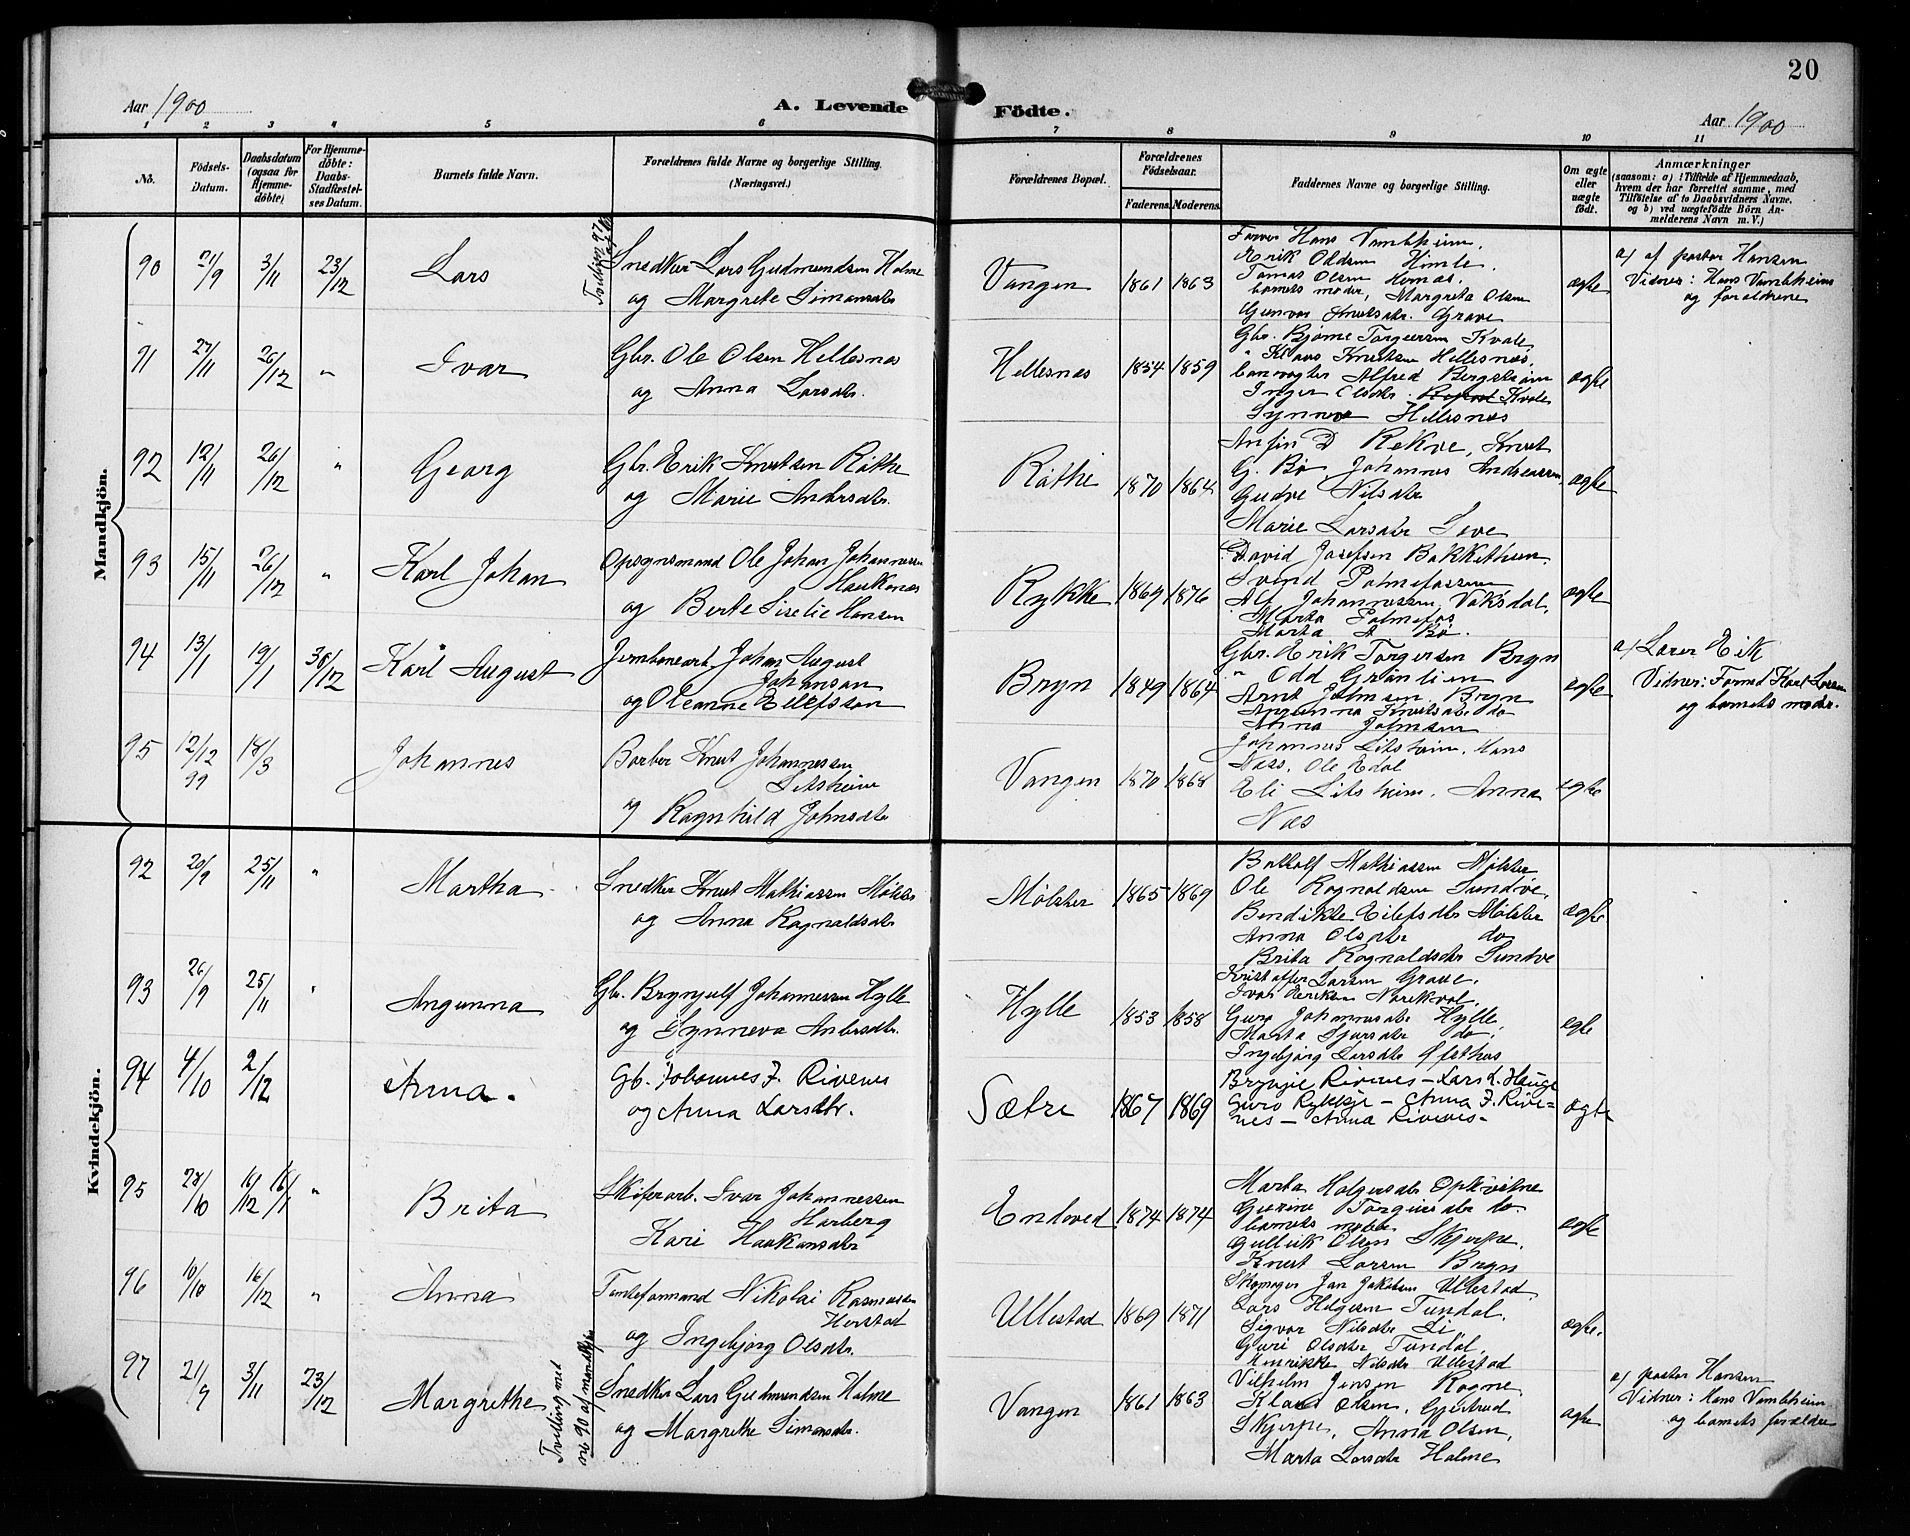 20
Aar 1900
A. Levende Födte.
Aar 1900
1 2 3 4 5 6 7 8 9 10 11
No.
Födsels-Datum.
Daabsdatum (ogsaa for Hjemme-döbte)
For Hjemme-döbte: Daabs-Stadfæstel-ses Datum.
Barnets fulde Navn.
Forældrenes fulde Navne og borgerlige Stilling.
(Næringsvei.)
Forældrenes Bopæl.
Forældrenes Födselsaar.
Faderens. Moderens.
Faddernes Navne og borgerlige Stilling.
Om ægte eller uægte födt.
Anmærkninger
(saasom: a) i Tilfælde af Hjemmedaab,
hvem der har forrettet samme, med
Tilföielse af to Daabsvidners Navne,
og b) ved uægtefödte Börn An-
melderens Navn m. V.)
Mandkjön.
90 21/9 3/11 23/12 Lars
Snedker Lars Gudmundsen Holme
og Margrete Simonsdtr.
Vangen 1861 1863
Farver Hans Vambheim,
Erik Oldsen Himle,
Tomas Olsen
barnets moder, Margreta Olsen
Gunvor Knutsdtr. Grave
ægte
a/ af pastor Hansen
Vidner: Hans Vambheim
og forældrene
91 27/11 26/12 " Ivar
Gbr. Ole Olsen Hellesnæs
og Anna Larsdtr.
Hellesnæs 1854 1859
Gbr. Bjørne Torgersen Kvale,
" Klaus Knutsen Hellesnæs,
banvogter Alfred Bergstrøm
Inger Olsdtr. Kvale
Synneve Hellesnæs
ægte
92 12/11 26/12 " Georg
Gbr. Erik Knutsen Røthe
og Marie Andersdtr.
Røthe 1870 1864
Anfin D Rekve, Knut
G. Bø Johannes Andreassen,
Gudve Nilsdtr
Marie Larsdtr Seve
ægte
93 15/11 26/12 " Karl Johan
Opsynsmand Ole Johan Johannessen
Haukenæs
og Berte Siselie Hansen
Rykke 1869 1876
David Josefsen Bakkethun
Svend Palmefossen
Alf Johannessen Vaksdal,
Marta Palmefos
Marta A Bø.
ægte
94 13/1 19/1 30/12 Karl August
Jernbanearb. Johan August
Johanson
og Oleanne Ellefsson
Bryn 1849 1864
Gbr. Erik Torgersen Bryn
" Odd Grønlien
Arne Johnsen Bryn
Angunna Knutsdtr do
Anna Johnsen
ægte
a/ Lærer Eik
Vidner: Formd Karl Larsen
og barnets moder.
95 12/12 99 18/3 Johannes
Barber Knut Johannessen
Litsheim
og Ragnhild Johnsdtr
Vangen 1870 1868
Johannes Litsheim, Hans
Næss, Ole Edal
Eli Litsheim, Anna
Næs
egte
Kvindekjön.
92 20/9 25/11 " Martha
Snedker Knut Mathiassen Mølster
og Anna Ragnaldsdtr
Mølster 1865 1869
Botolf Mathiassen Mølster
Ole Ragnaldsen Sundve,
Bendikte Eilefsdtr Mølster
Anna Olsdtr do
Brita Ragnaldsdtr Sundve
ægte
93 26/9 25/11 " Angunna
Gbr. Brynjulf Johannessen Hylle
og Synneva Andersdtr.
Hylle 1853 1858
Kristoffer Larsen Grave,
Ivar Eriksen
Guro Johannesdtr Hylle,
Marta Sjursdtr do,
Ingebjørg Larsdtr
egte
94 4/10 2/12 Anna.
Gb. Johannes J. Rivenes
og Anna Larsdtr.
Sætre 1867 1869
Brynjie Rivenes – Lars L. Hauge
Guro Rykkje – Anna J. Rive=
nes – Anna Rivenes –
ægte
95 27/10 16/12 16/1 " Brita
Skiferarb. Ivar Johannessen
Harberg
Kari Haakonsdtr
Endeved 1874 1874
Marta Holgersdtr Opkvitne
Gurine Torgersdtr do.
barnets moder
Gullik Olsen Skjerpe,
Knut Larsen Bryn
egte
96 10/10 16/12 " Anna
Tomteformand Nikolai Rasmussen
Herstad
og Ingebjørg Olsdtr.
Ullestad 1869 1871
Skomager Jan Jakobsen Ullestad
Lars Helgesen Tundal,
Sigvor Nilsdtr Li
Guri Olsdtr Tundal,
Henrikke Nilsdtr Ullestad
ægte.
97 21/9 3/11 23/12 Margrethe
Tvilling med
no 90 af mandkjøn
Snedker Lars Gudmundsen Holme
og Margrethe Simonsdtr.
Vangen 1861 1863
Vilhelm Jensen Rogne
Klaus Olsen, Gjertrud
Skjerpe, Anna Olsen,
Marta Larsdtr Holme
ægte
a) pastor Hansen
Vidner: Hans Vambheim
og barnets forældre